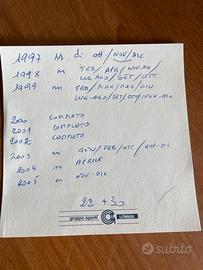 1997 N. di ott/NOV/DIC
1998 m FEB/APR/NOV.DIC/
LUG.AGO/SET/OTT
1999 m FEB/MAR/MAG/GIU
LUG-AGO/SET/OTT/NOV.DIC
2000 COMPLETO
2001 COMPLETO
2002 COMPLETO
2003 m GEN/FEB/OTT/NOV.DIC
2004 m APRILE
2005 m NOV-DIC
22 +30
gruppo agenti
subito